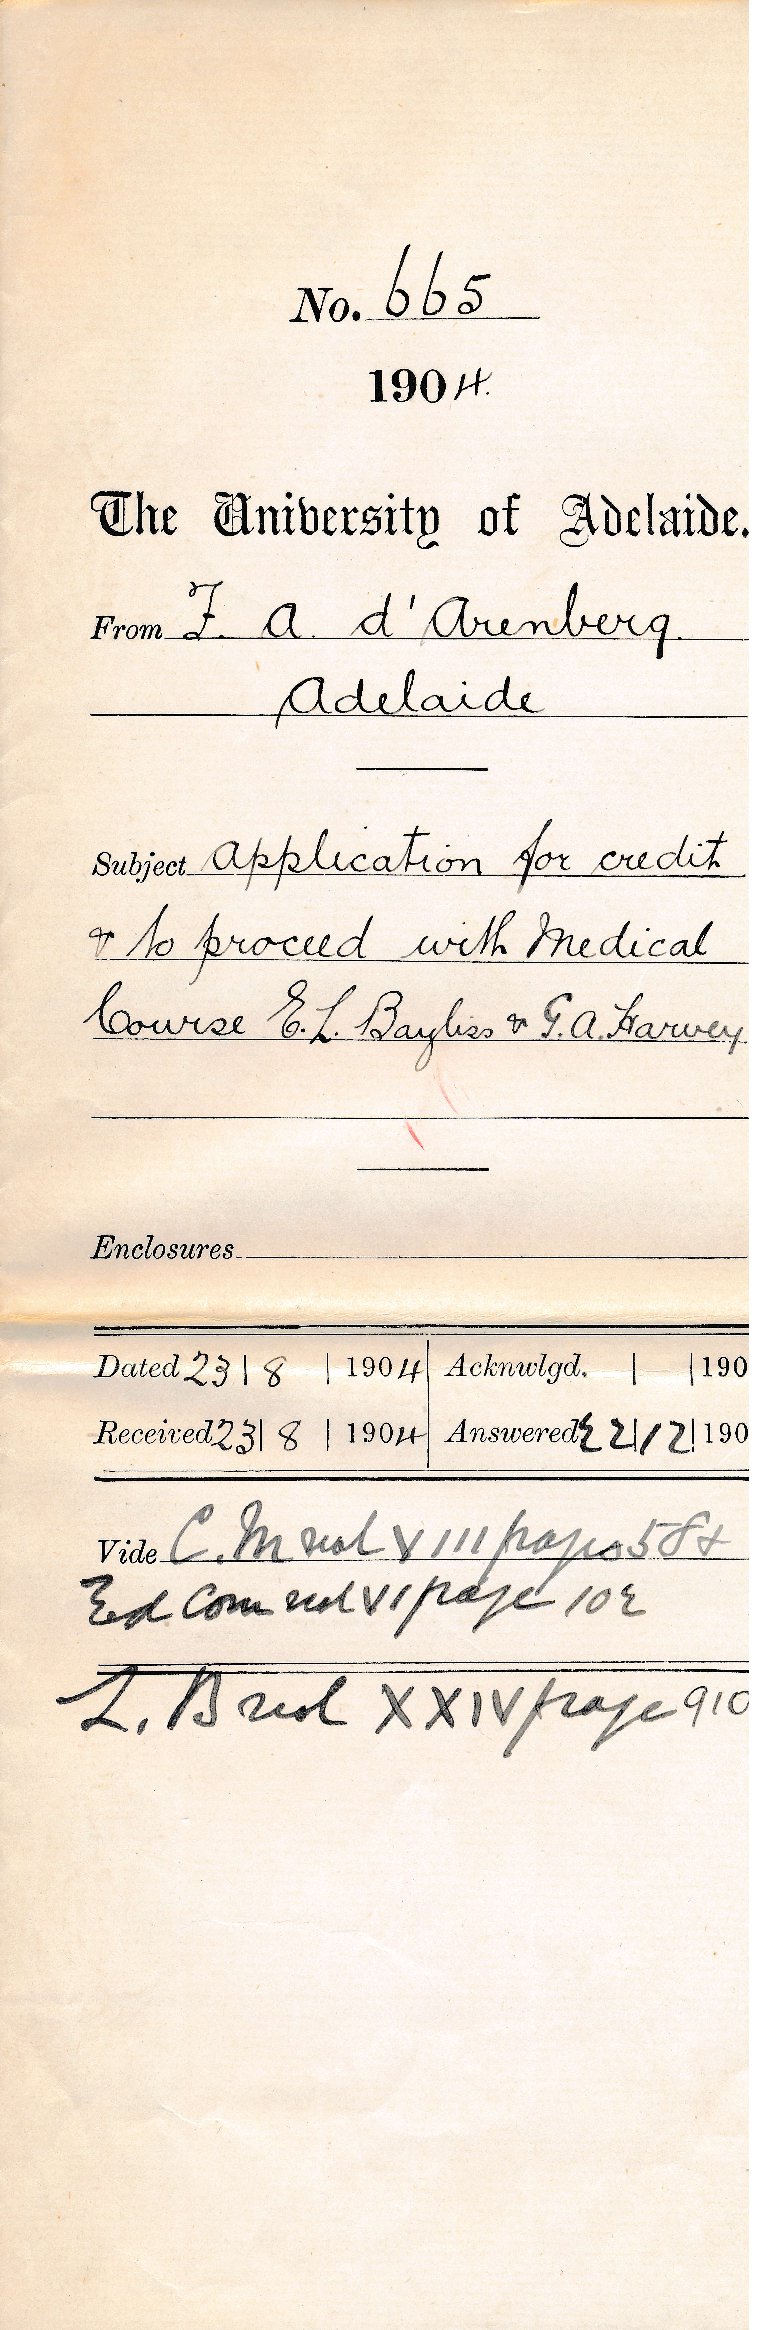 No. 665
1904.
The University of Adelaide.
From F. A. d'Arenberg.
Adelaide
Subject Application for credit
& to proceed with Medical
Course E. L. Bayliss & G. A. Harvey
Enclosures
Dated 23 | 8 | 1904 Acknwlgd. | | 190
Received 23 | 8 | 1904 Answered 22 | 12 | 190
Vide C. M vol VIII page 58
Ed Com vol VI page 102
L. B vol XXIV page 910